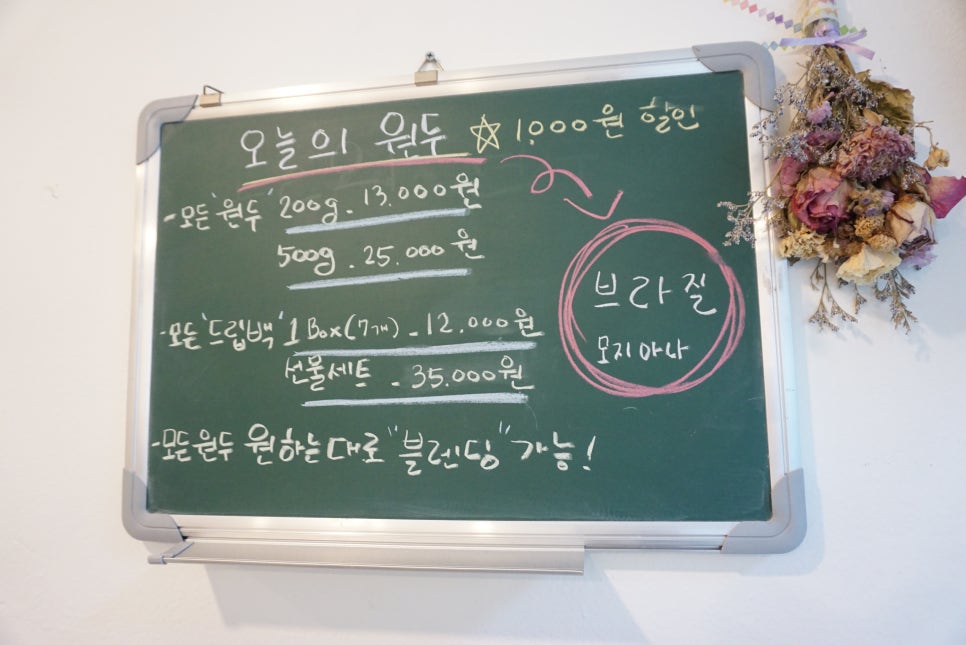 오늘의 원두 ☆ 1,000원 할인
-모든 '원두' 200g - 13.000원
500g - 25.000원
브라질
모지아나
-모든 '드립백' 1 Box(7개) - 12.000원
선물세트 - 35.000원
-모든원두 원하는대로 "블렌딩" 가능!